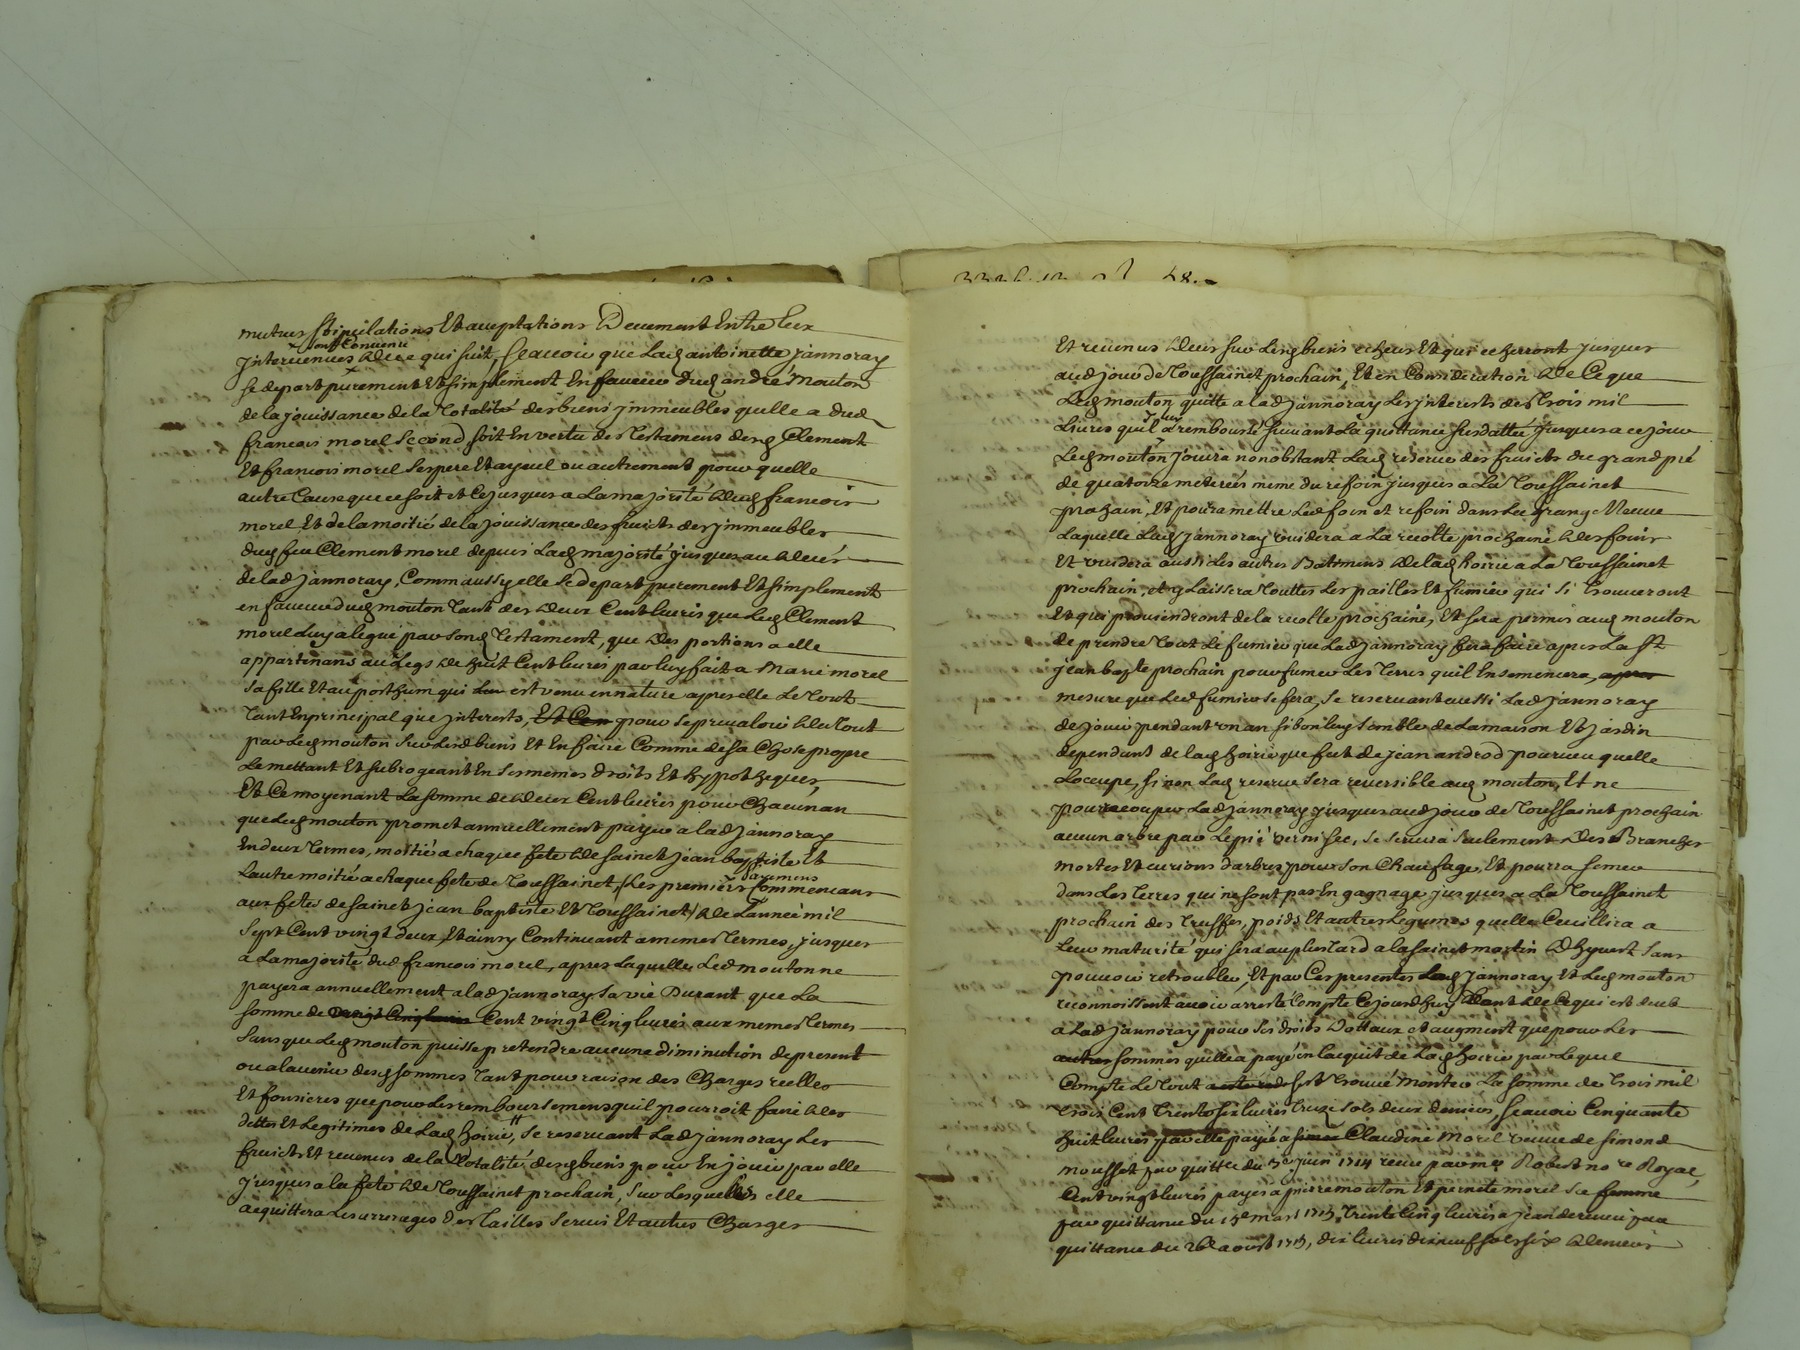 mutues stipulations Et acceptations Deuement Entre Eux
sont Convenu
Intervenues de ce qui suit, scauoir que Lad antoinette Jannoray
se depart purement Et simplement En faueur dud andré Mouton
de la jouissance de la Totalité des biens jmmeubles quelle a dud
francois morel second, soit En vertu des Testamens desd Clement
Et francois morel ses pere Et ayeul ou autrement pour quelle
autre Cause que ce soit et ce jusques a La majorité dud francois
morel Et de la moitié de la jouissance des fruicts des jmmeubles
dud feu Clement morel depuis Lad majorité jusques au deces
de lad Jannoray, Comm aussy elle se depart purement Et simplement
en faueur dud mouton tant des deux Cent liures que Led Clement
morel Luy a legué par sond Testament, que des portions a elle
appartenans au Legs de huit Cent liures par luy fait a Marie morel
sa fille Et au posthum qui est venu en nature apres elle Le tout
tant En principal que jnterests, Et Ce pour se preualoir du tout
par Led mouton sur Lesd biens Et En faire Comme de sa Chose propre
Le mettant Et subrogeant En ses memes droits Et hypotheques,
Et Ce moyenant La somme de deux Cent liures pour Chacun an
que Led mouton promet annuellement payer a lad Jannoray
En deux termes, moitié a chaque fete de sainct jean baptiste Et
payemens
Lautre moitié a chaque fete de Toussainct, Les premiers Commencans
aux fetes de sainct jean baptiste Et Toussainct de Lannéé mil
sept Cent vingt deux, Et ainsy Continuant a memes termes, jusques
a La majorité dud francois morel, apres Laquelle Led mouton ne
payera annuellement a lad Jannoray sa vie Durant que La
somme de vingt Cinq liures Cent vingt Cinq liures aux memes termes
sans que Led mouton puisse pretendre aucune diminution de present
ou a lauenir desd sommes tant pour raison des Charges reelles
Et fonsieres que pour Les remboursemens quil pourroit faire des
dettes Et Legitimes de Lad hoirie, se reseruant Lad Jannoray Les
fruicts Et reuenus de la Totalité desd biens pour En jouir par elle
jusques a la fete de Toussainct prochain, sur Lesquels elle
acquittera Les arrerages des tailles seruis Et autres Charges
Et reuenus deus sur Lesd biens echeus Et qui echerront jusques
aud jour de Toussainct prochain, Et en Consideration de Ce que
Led mouton quitte a lad Jannoray Les jnterests des trois mil
Liures quil a remboursé suiuant La quittance susdattée jusques a ce jour
Led mouton jouira nonobstant Lad reserue des fruicts du grand pré
de quatorze meterées meme du refoin jusques a La Toussainct
prochain, Et poura mettre Led foin et refoin dans La grange Neuue
Laquelle Lad Jannoray vuidera a La recolte prochaine des foins
Et vuidera aussi Les autres Batimens de lad hoirie a La Toussainct
prochain, et y Laissera touttes Les pailles Et fumier qui si trouueront
Et qui prouiendront de la recolte prochaine, Et sera permis aud mouton
de prendre tout Le fumier que Lad Jannoray fera faire apres La St
jean bapte prochain pour fumer Les terres quil Ensemencera,
mesure que Led fumier se fera, se reseruant aussi Lad Jannoray
de jouir pendant vn an si bon luy semble de La maison Et jardin
dependant de lad hoirie que fut de jean androd pourueu quelle
Loccupe, sinon Lad reserue sera reuersible aud mouton, Et ne
poura couper Lad Jannoray jusques aud jour de Toussainct prochain
aucun arbre par Le pié vernissee, se seruira seulement des Branches
mortes Et curions darbres pour son Chaufage, Et pourra semer
dans Les terres qui ne sont pas En gagnage jusques a La Toussainct
prochain des truffes, poids Et autres Legumes quelle Cueillira a
Leur maturité qui sera au plus tard a la sainct martin dhyuert sans
pouuoir retroubler, Et par Ces presentes Lad Jannoray Et Led mouton
reconnoissent auoir arresté Compte Cejourdhuy tant de Ce qui est deub
a Lad Jannoray pour ses droits Dottaux et augment que pour Les
autres sommes quelle a payé en Lacquit de Lad hoirie par Lequel
Compte Le tout sest trouué monter La somme de trois mil
trois Cent trente six liures treze sols deux deniers, scauoir Cinquante
huit liures par elle payée a Claudine Morel veuue de simond
mousset par quittce du 3e juin 1714 receue par me Robert nore Royal,
Cent vingt liures payés a pierre mouton Et pernete morel sa femme
par quittance du 15e mars 1715, trente Cinq liures a jean dereure par
quittance du 26e aoust 1715, dix liures dix neuf sols six deniers